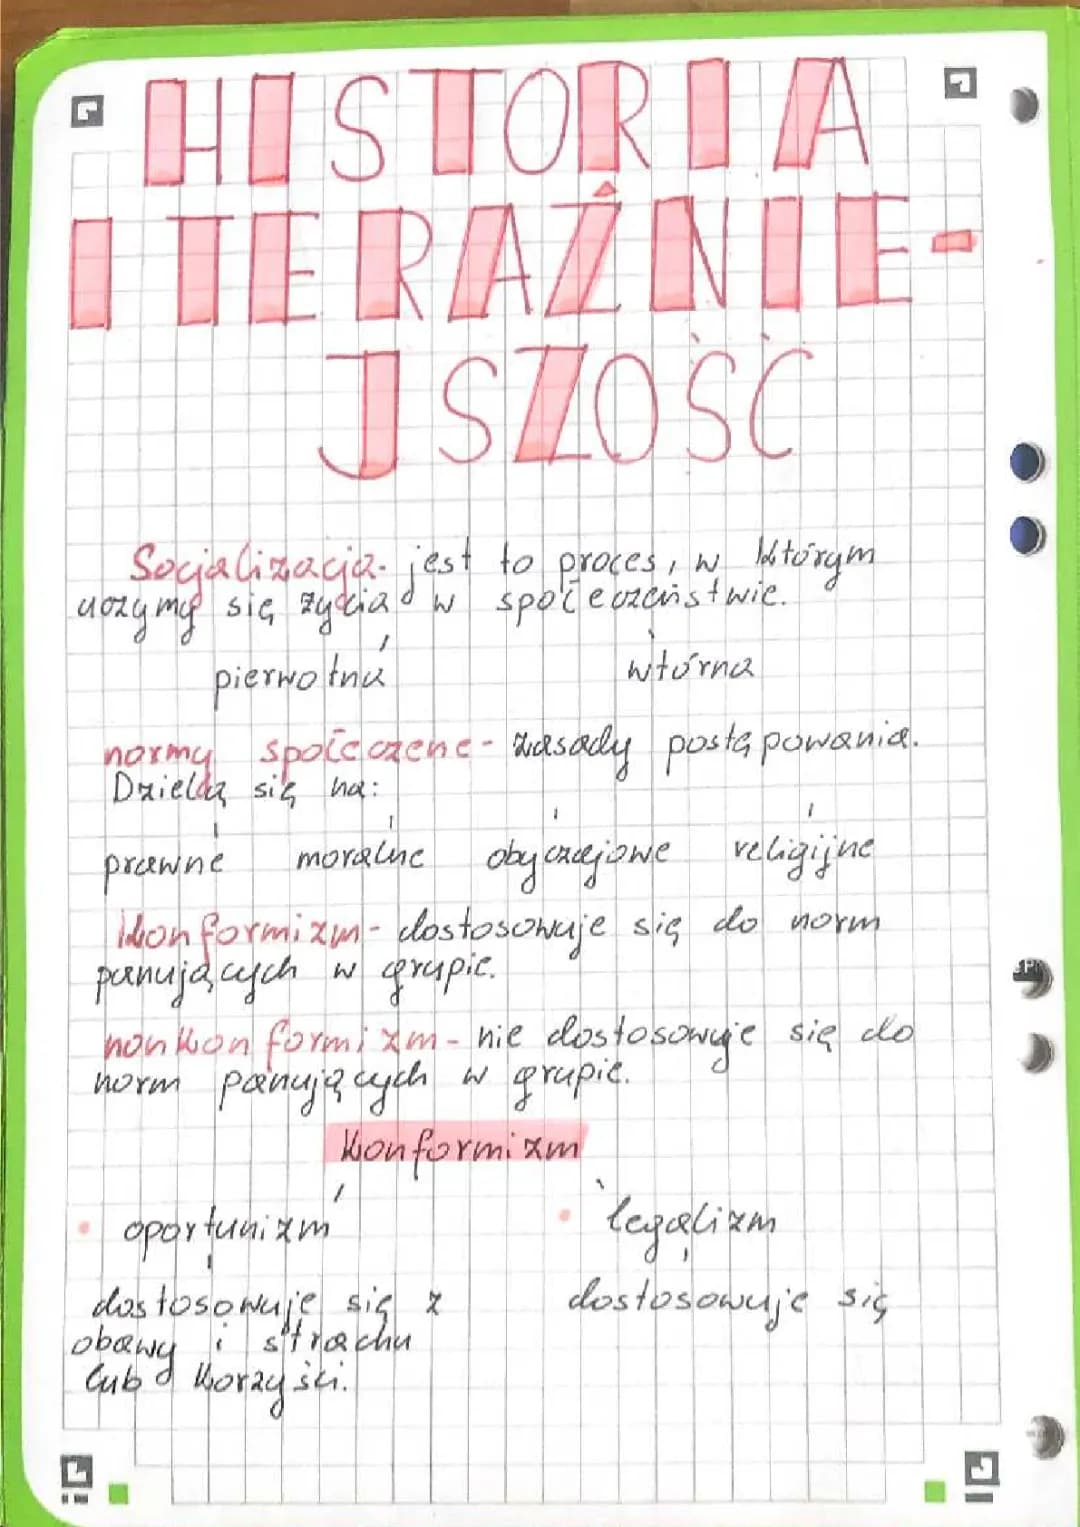 HISTORIA
I TERAŹNIE-
JSZOŚĆ
Socjalizacja- jest to proces, w którym
uczymy się życia w społeczeństwie.
pierwotna wtórna
normy społeczene- zasady postępowania.
Dzielą się na:
prawne moralne obyczajowe religijne
konformizm- dostosowuje się do norm
panujących w grupie.
nonkonformizm- nie dostosowuje się do
norm panujących w grupie.
konformizm
• oportunizm • legalizm
dostosowuje się z dostosowuje się
obawy i strachu
lub korzyści.